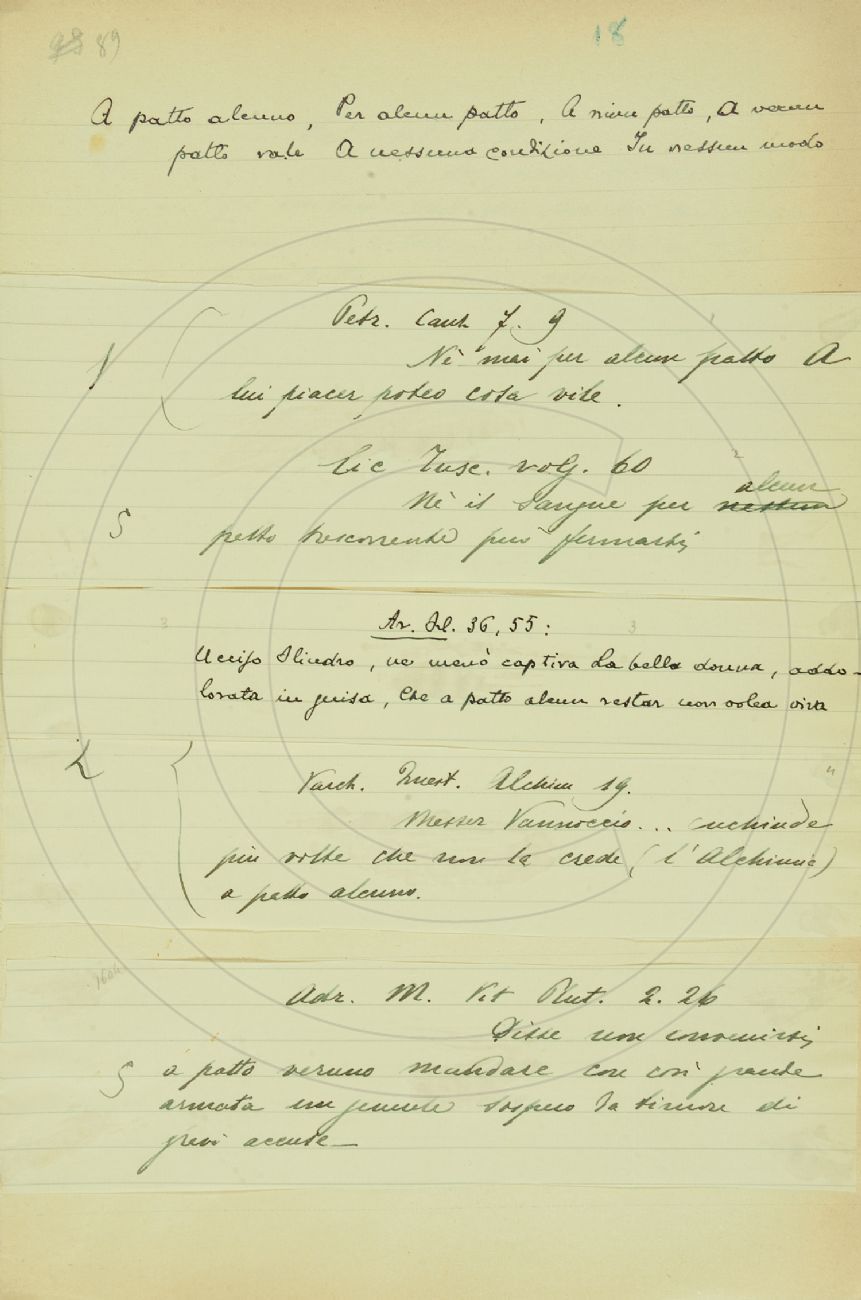 98 89
18
A patto alcuno, Per alcun patto, A niun patto, A verun
patto vale A nessuna condizione In nessun modo
Petr. Canz. 7. 9
Nè mai per alcun patto A
lui piacer poteo cosa vile.
Cic Tusc. volg. 60
alcun
Nè il sangue per nessun
patto trascorrente può fermarsi
Ar. Fl. 36, 55:
3 3
Ucciso Ilindro, ne menò captiva La bella donna, addo-
lorata in guisa, Che a patto alcun restar non volea viva
Varch. Quest. Alchim 19.
Messer Vannoccio... conchiude
più volte che non la crede (l'Alchimia)
a patto alcuno.
Adr. M. Vit Plut. 2. 26
Disse non convenirsi
a patto veruno mandare con così grande
armata un generale sospeso da timore di
grevi accuse—